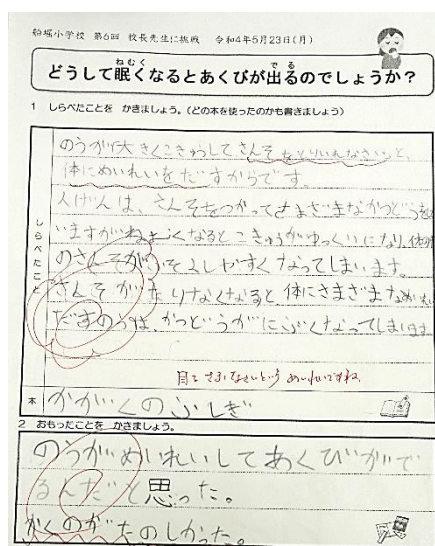 船堀小学校 第6回 校長先生に挑戦 令和4年5月23日(月)
どうして眠くなるとあくびが出るのでしょうか?
1 しらべたことを かきましょう。(どの本を使ったのかも書きましょう)
しらべたこと
のうが大きくこきゅうしてさんそをとりいれなさいと、
体にめいれいをだすからです。
人げんは、さんそをつかってさまざまなかつどうを
いますがねむくなるとこきゅうがゆっくりになり、体の
のさんそがふそくしやすくなってしまいます。
さんそがたりなくなると、体にさまざまなめいれ
だすのうは、かつどうがにぶくなってしまいます
目をさましなさいという めいれいですね
本 かがくのふしぎ
2 おもったことを かきましょう。
のうがめいれいしてあくびがで
るんだと思った。
かくのがたのしかった。